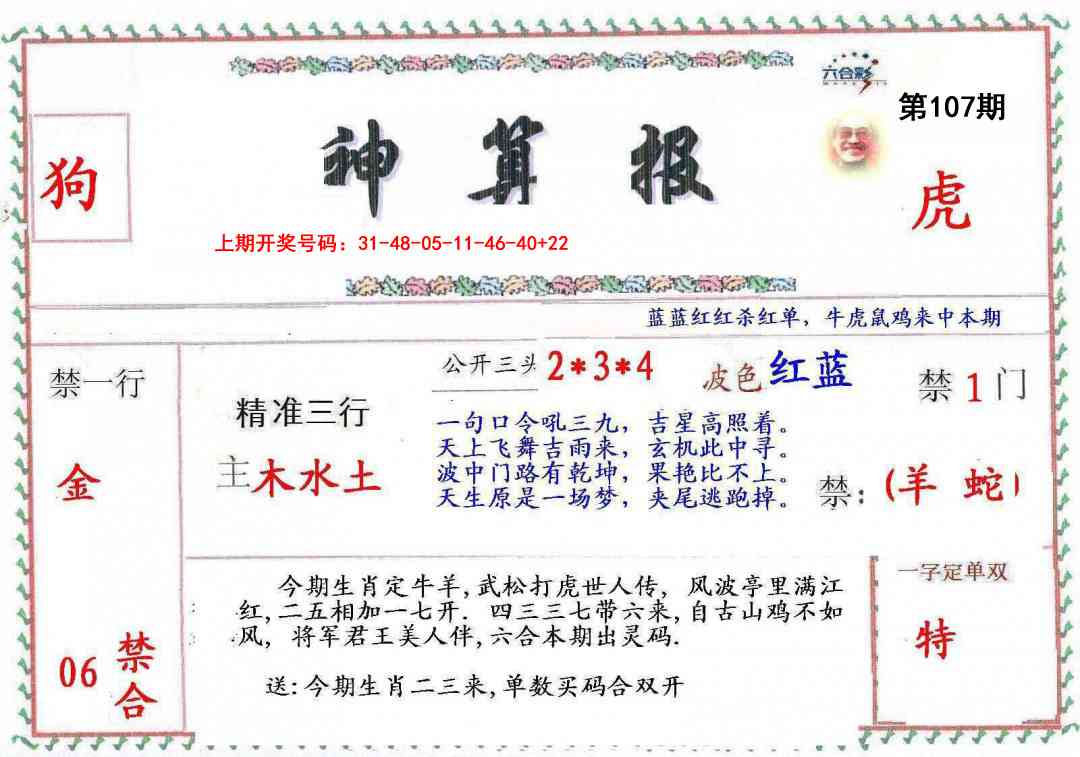 六合彩
第107期
狗
神算报
虎
上期开奖号码：31-48-05-11-46-40+22
蓝蓝红红杀红单，牛虎鼠鸡来中本期
禁一行
金
06
禁合
精准三行
主木水土
公开三头 2*3*4
波色 红蓝
禁 1 门
一句口令吼三九，吉星高照着。
天上飞舞吉雨来，玄机此中寻。
波中门路有乾坤，果艳比不上。
天生原是一场梦，夹尾逃跑掉。
禁：(羊 蛇)
今期生肖定牛羊,武松打虎世人传，风波亭里满江
红,二五相加一七开．四三三七带六来,自古山鸡不如
风，将军君王美人伴,六合本期出灵码.
送:今期生肖二三来,单数买码合双开
一字定单双
特